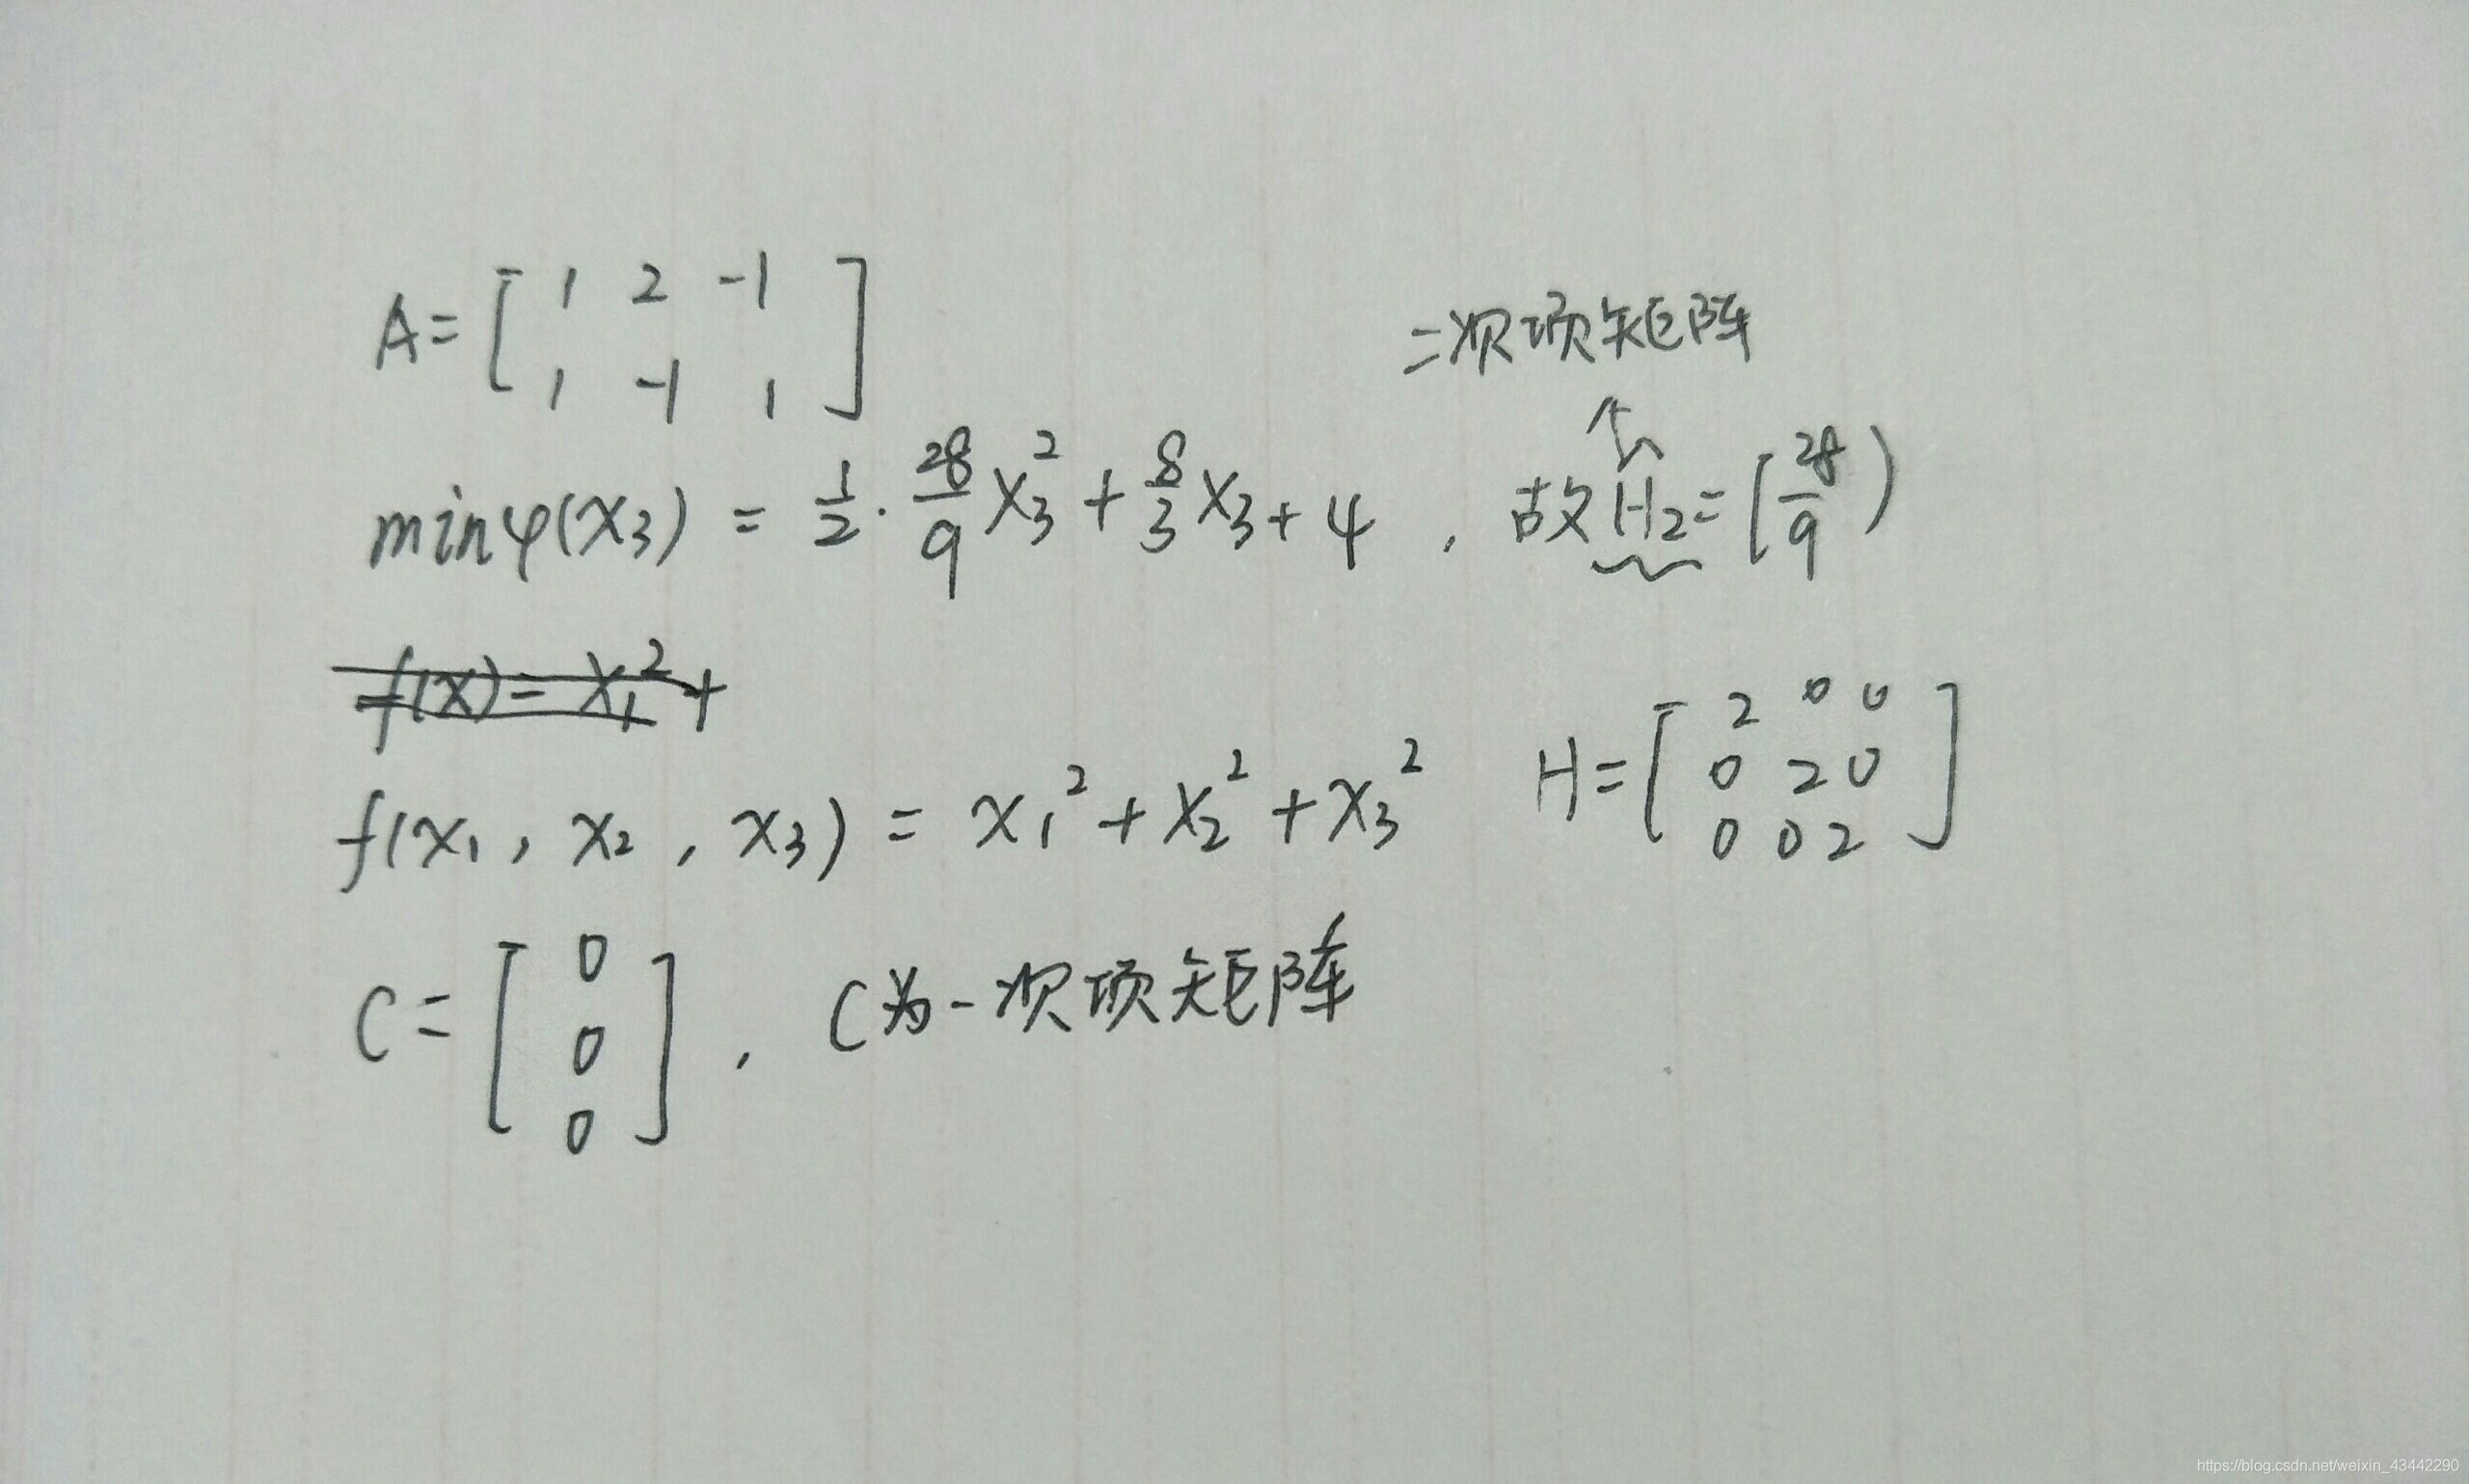 A = [ 1 2 -1
1 -1 1 ]
二次项矩阵
min φ(x₃) = 1/2 · 28/9 x₃² + 8/3 x₃ + 4 , 故 H₂ = [28/9)
f(x) = x₁² +
f(x₁, x₂, x₃) = x₁² + x₂² + x₃² H = [ 2 0 0
0 2 0
0 0 2 ]
C = [ 0
0
0 ] , C为一次项矩阵
https://blog.csdn.net/weixin_43442290